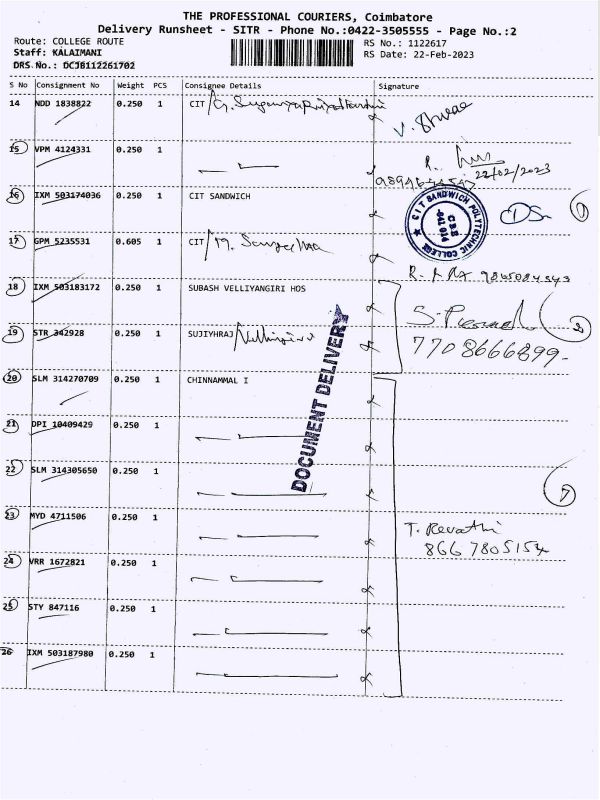 THE PROFESSIONAL COURIERS, Coimbatore
Delivery Runsheet - SITR - Phone No.:0422-3505555 - Page No.:2
Route: COLLEGE ROUTE
RS No.: 1122617
Staff: KALAIMANI
RS Date: 22-Feb-2023
DRS No.: DCJB112261702
S No Consignment No Weight PCS Consignee Details Signature
14 NDD 1838822 0.250 1 CIT/G.
V.
15 VPM 4124331 0.250 1
R.
22/02/2023
16 IXM 503174036 0.250 1 CIT SANDWICH
CIT SANDWICH POLYTECHNIC COLLEGE
CBE
-641 014
17 GPM 5235531 0.605 1 CIT/M.
18 IXM 503183172 0.250 1 SUBASH VELLIYANGIRI HOS
S.
7708666899-
19 STR 342928 0.250 1 SUJIYHRAJ
DOCUMENT DELIVERY
20 SLM 314270709 0.250 1 CHINNAMMAL I
21 DPI 10409429 0.250 1
22 SLM 314305650 0.250 1
7
23 MYD 4711506 0.250 1
T. Revathi
8667805154
24 VRR 1672821 0.250 1
25 STY 847116 0.250 1
26 IXM 503187980 0.250 1